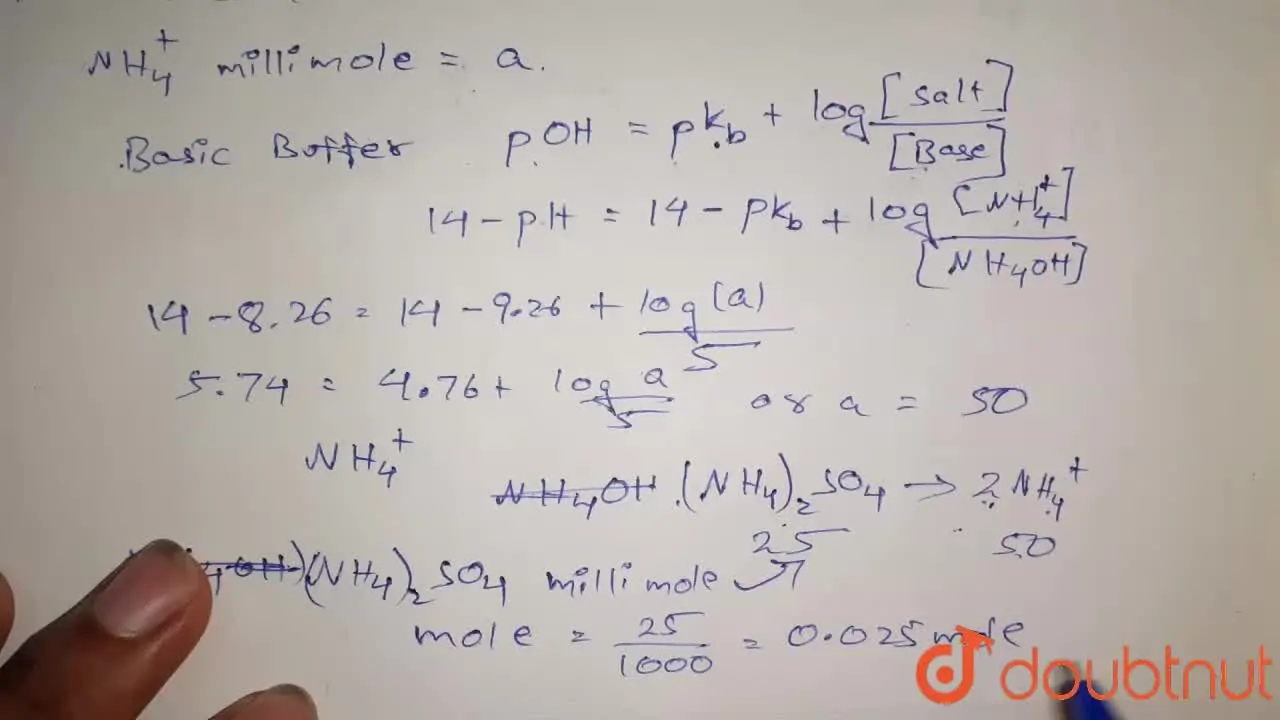 NH4+ millimole = a.
Basic Buffer pOH = pKb + log [salt]/[Base]
14 - pH = 14 - pKb + log [NH4+]/[NH4OH]
14 - 8.26 = 14 - 9.26 + log(a)/5
5.74 = 4.76 + log a/5 or a = 50
NH4+
NH4OH .(NH4)2SO4 → 2NH4+
25 50
4OH)(NH4)2SO4 millimole
mole = 25/1000 = 0.025 mole
doubtnut